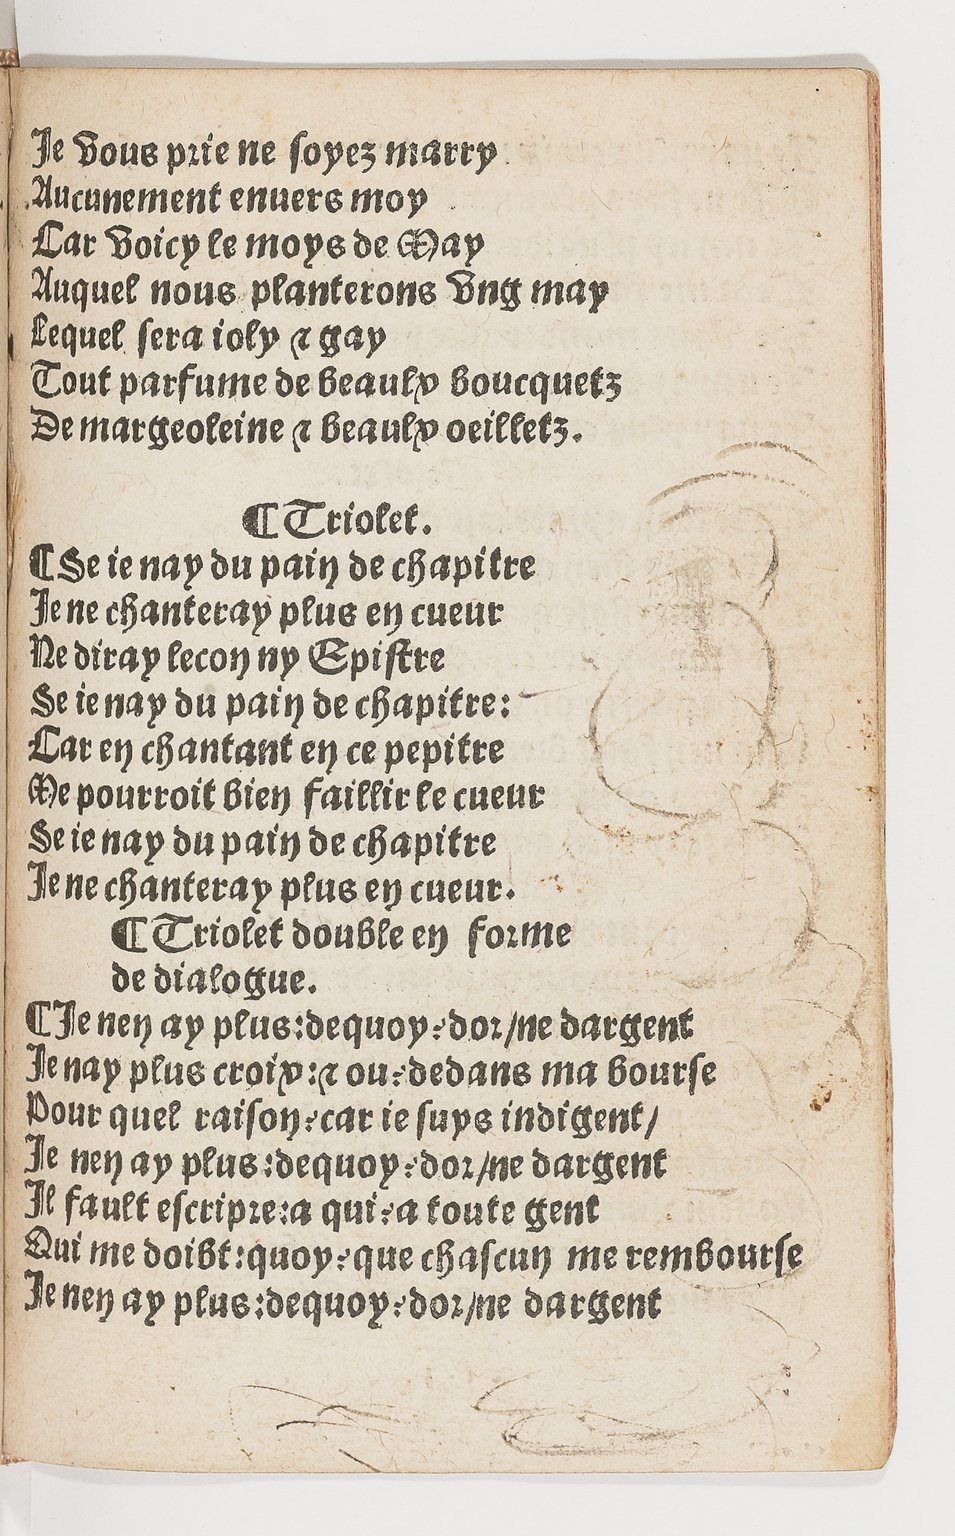 Je vous prie ne soyez marry
Aucunement enuers moy
Car voicy le moys de May
Auquel nous planterons vng may
Lequel sera ioly ⁊ gay
Tout parfume de beaulx boucquetz
De margeoleine ⁊ beaulx oeilletz.
¶ Triolet.
¶ Se ie nay du pain de chapitre
Je ne chanteray plus en cueur
Ne diray lecon ny Epistre
Se ie nay du pain de chapitre:
Car en chantant en ce pepitre
Me pourroit bien faillir le cueur
Se ie nay du pain de chapitre
Je ne chanteray plus en cueur.
¶ Triolet double en forme
de dialogue.
¶ Je nen ay plus:dequoy?dor/ne dargent
Je nay plus croix:⁊ ou?dedans ma bourse
Pour quel raison?car ie suys indigent/
Je nen ay plus:dequoy?dor/ne dargent
Il fault escripre:a qui?a toute gent
Qui me doibt:quoy?que chascun me rembourse
Je nen ay plus:dequoy?dor/ne dargent